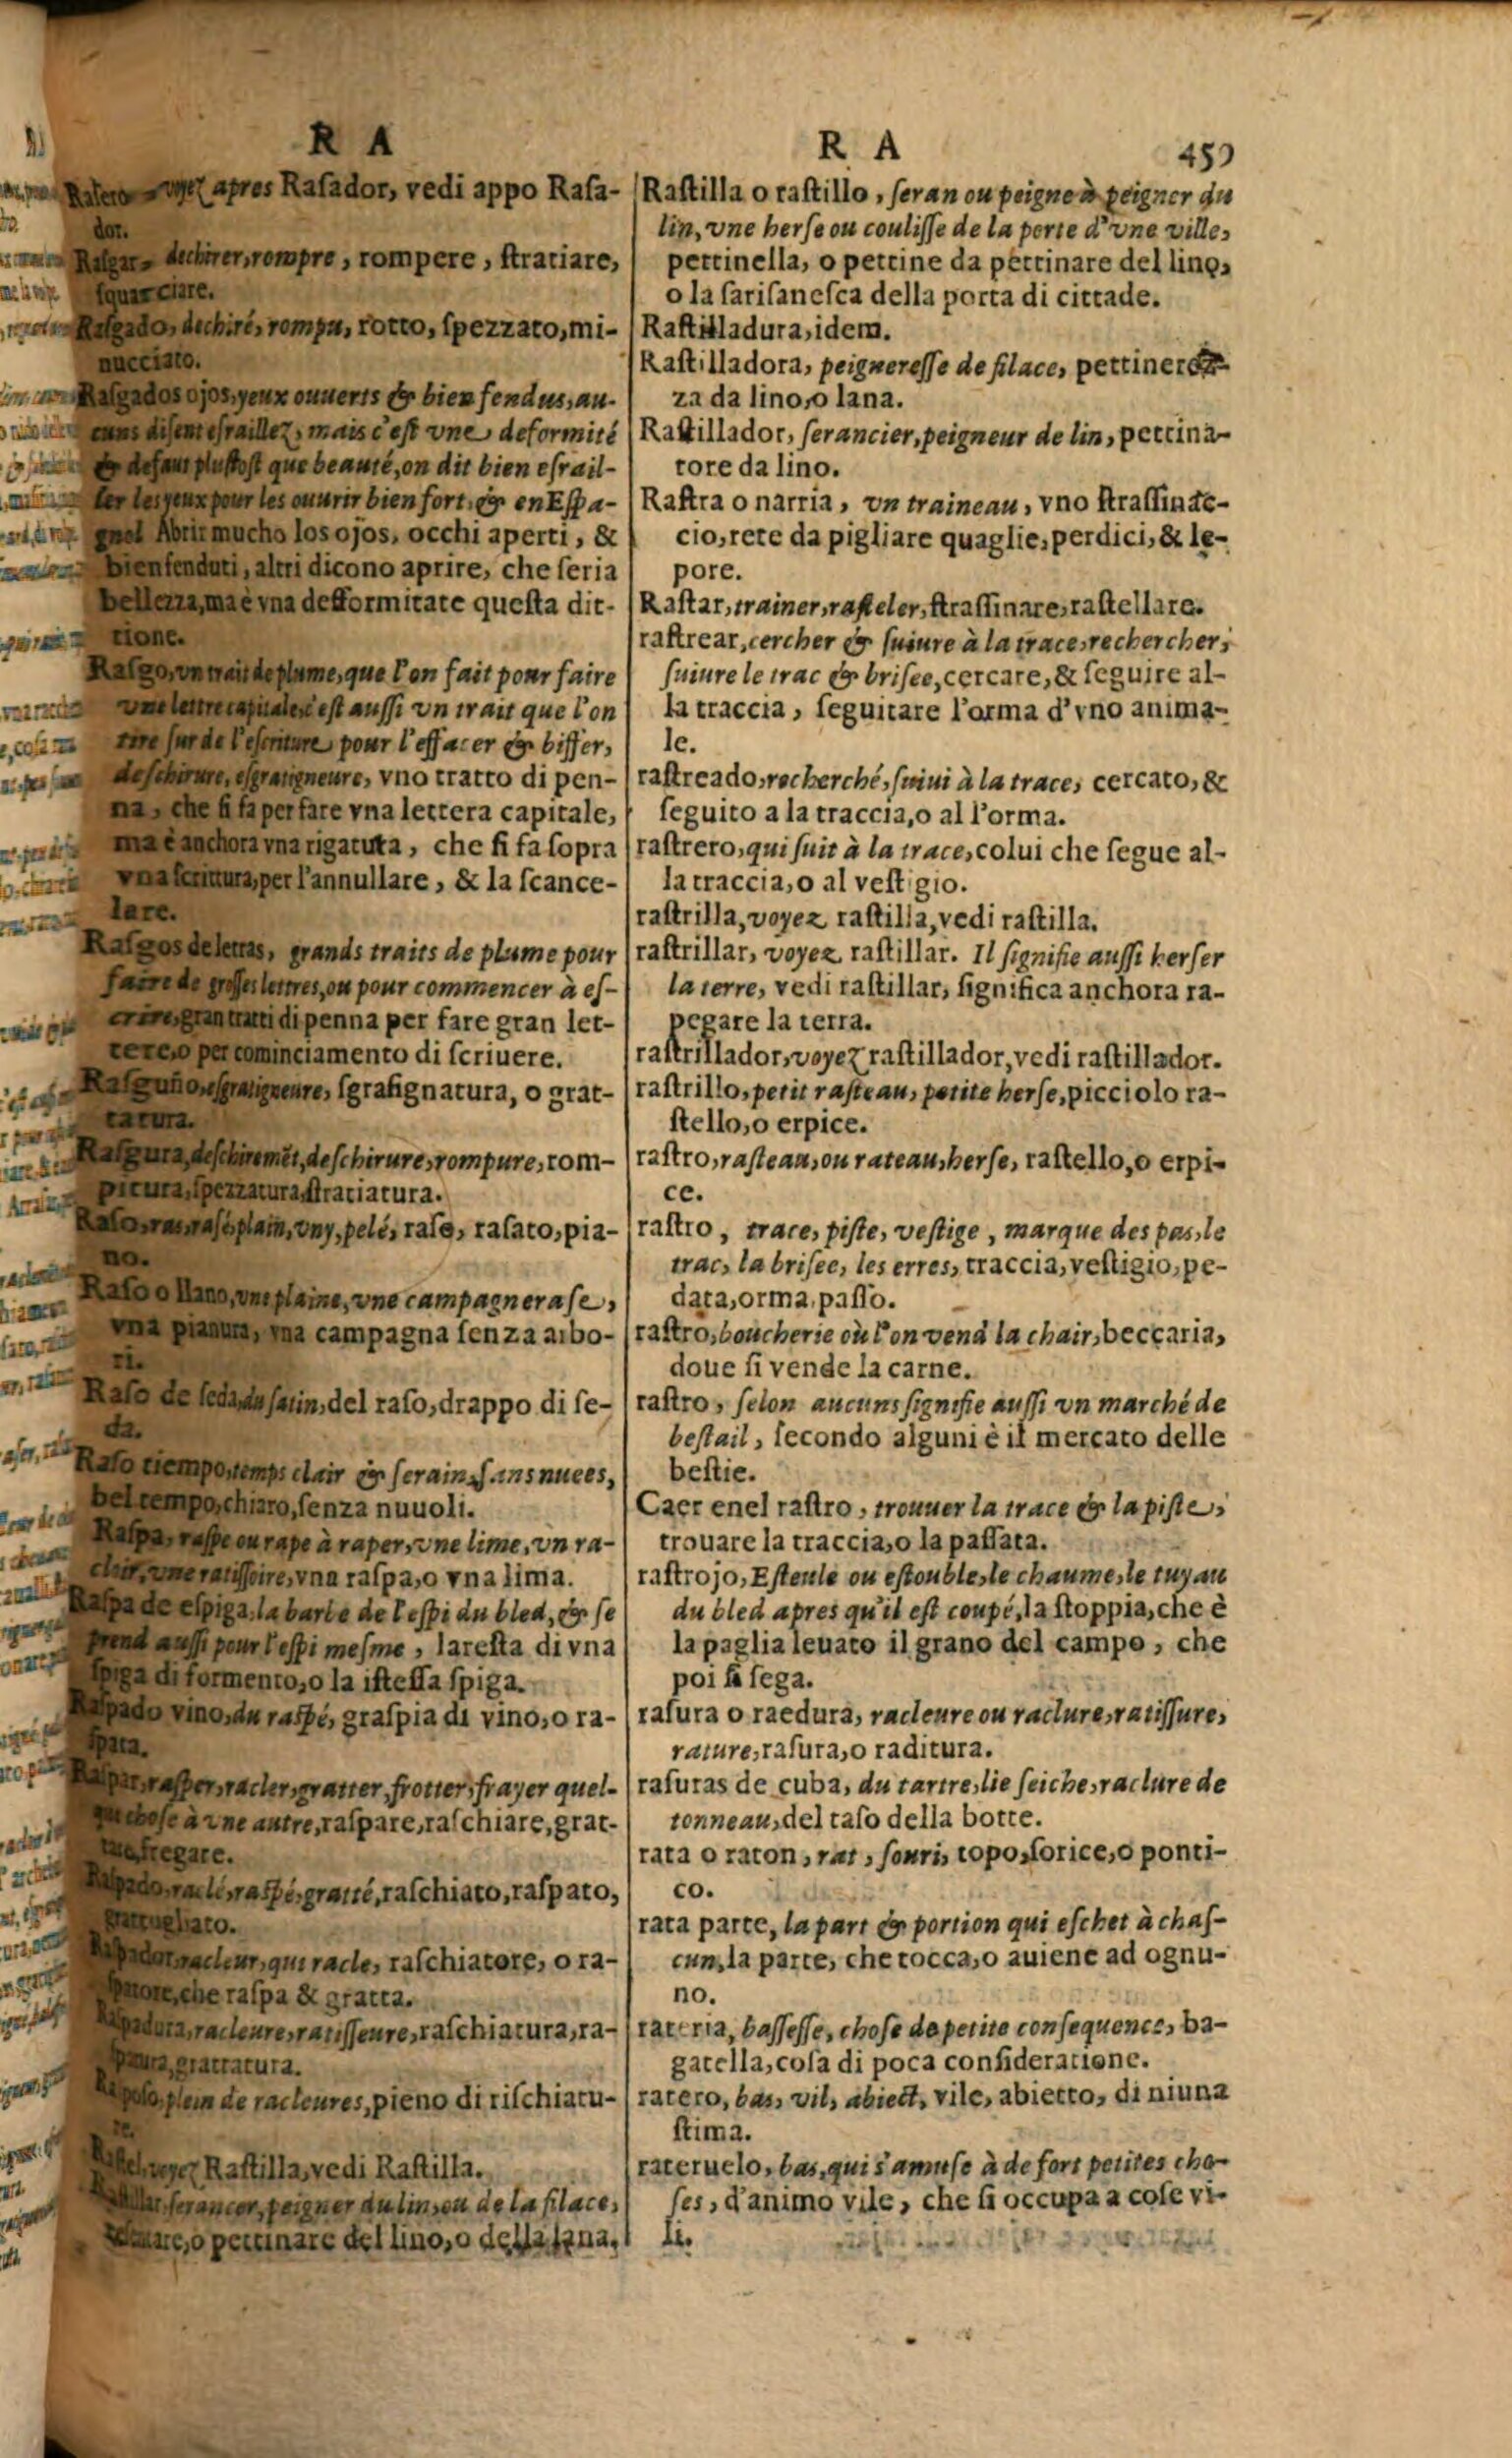 R A
Rasero voyez apres Raſador, vedi appo Raſa-
dor.
Raſgar, dechirer, rompre, rompere, ſtratiare,
ſquarciare.
Raſgado, dechiré, rompu, rotto, ſpezzato, mi-
nucciato.
Raſgados ojos, yeux ouuerts & bien fendus, au-
cuns diſent eſraillez, mais c'eſt vne deformité
& defaut pluſtoſt que beauté, on dit bien eſrail-
ler les yeux pour les ouurir bien fort, & en Eſpa-
gnol Abrir mucho los ojos, occhi aperti, &
bienfenduti, altri dicono aprire, che ſeria
bellezza, ma è vna defformitate queſta dit-
tione.
Raſgo, vn trait de plume, que l'on fait pour faire
vne lettre capitale, c'eſt auſſi vn trait que l'on
tire ſur de l'eſcriture pour l'effacer & biffer,
deſchirure, eſgratigneure, vno tratto di pen-
na, che ſi fa per fare vna lettera capitale,
ma è anchora vna rigatuta, che ſi fa ſopra
vna ſcrittura, per l'annullare, & la ſcance-
lare.
Raſgos de letras, grands traits de plume pour
faire de groſſes lettres, ou pour commencer à eſ-
crire, gran tratti di penna per fare gran let-
tere, o per cominciamento di ſcriuere.
Raſguño, eſgratigneure, ſgrafignatura, o grat-
tatura.
Raſgura, deſchiremẽt, deſchirure, rompure, rom-
pitura, ſpezzatura, ſtratiatura.
Raſo, ras, raſé, plain, vny, pelé, raſo, raſato, pia-
no.
Raſo o llano, vne plaine, vne campagne raſe,
vna pianura, vna campagna ſenza arbo-
ri.
Raſo de ſeda, du ſatin, del raſo, drappo di ſe-
da.
Raſo tiempo, temps clair & ſerain, ſans nuees,
bel tempo, chiaro, ſenza nuuoli.
Raſpa, raſpe ou rape à raper, vne lime, vn ra-
cloir, vne ratiſſoire, vna raſpa, o vna lima.
Raſpa de eſpiga, la barbe de l'eſpi du bled, & ſe
prend auſſi pour l'eſpi meſme, lareſta di vna
ſpiga di formento, o la iſteſſa ſpiga.
Raſpado vino, du raſpé, graſpia di vino, o ra-
ſpata.
Raſpar, raſper, racler, gratter, frotter, frayer quel-
que choſe à vne autre, raſpare, raſchiare, grat-
tare, fregare.
Raſpado, raclé, raſpé, gratté, raſchiato, raſpato,
grattugliato.
Raſpador, racleur, qui racle, raſchiatore, o ra-
ſpatore, che raſpa & gratta.
Raſpadura, racleure, ratiſſeure, raſchiatura, ra-
ſpatura, grattatura.
Raſposo, plein de racleures, pieno di riſchiatu-
re.
Raſtel, voyez Raſtilla, vedi Raſtilla.
Raſtillar, ſerancer, peigner du lin, ou de la filace,
o pettinare del lino, o della lana.
R A 459
Raſtilla o raſtillo, ſeran ou peigne à peigner du
lin, vne herſe ou couliſſe de la porte d'vne ville,
pettinella, o pettine da pettinare del lino,
o la ſariſaneſca della porta di cittade.
Raſtilladura, idem.
Raſtilladora, peignereſſe de filace, pettinero-
za da lino, o lana.
Raſtillador, ſerancier, peigneur de lin, pettina-
tore da lino.
Raſtra o narria, vn traineau, vno ſtraſſinac-
cio, rete da pigliare quaglie, perdici, & le-
pore.
Raſtar, trainer, raſteler, ſtraſſinare, raſtellare.
raſtrear, cercher & ſuiure à la trace, rechercher,
ſuiure le trac & briſee, cercare, & ſeguire al-
la traccia, ſeguitare l'orma d'vno anima-
le.
raſtreado, recherché, ſuiui à la trace, cercato, &
ſeguito a la traccia, o al l'orma.
raſtrero, qui ſuit à la trace, colui che ſegue al-
la traccia, o al veſtigio.
raſtrilla, voyez raſtilla, vedi raſtilla.
raſtrillar, voyez raſtillar. Il ſignifie auſſi herſer
la terre, vedi raſtillar, ſignifica anchora ra-
pegare la terra.
raſtrillador, voyez raſtillador, vedi raſtillador.
raſtrillo, petit raſteau, petite herſe, picciolo ra-
ſtello, o erpice.
raſtro, raſteau, ou rateau, herſe, raſtello, o erpi-
ce.
raſtro, trace, piſte, veſtige, marque des pas, le
trac, la briſee, les erres, traccia, veſtigio, pe-
data, orma, paſſo.
raſtro, boucherie où l'on vend la chair, beccaria,
doue ſi vende la carne.
raſtro, ſelon aucuns ſignifie auſſi vn marché de
beſtail, ſecondo alguni è il mercato delle
beſtie.
Caer enel raſtro, trouuer la trace & la piſte,
trouare la traccia, o la paſſata.
raſtrojo, Eſteule ou eſtouble, le chaume, le tuyau
du bled apres qu'il eſt coupé, la ſtoppia, che è
la paglia leuato il grano del campo, che
poi ſi ſega.
raſura o raedura, racleure ou raclure, ratiſſure,
rature, raſura, o raditura.
raſuras de cuba, du tartre, lie ſeiche, raclure de
tonneau, del taſo della botte.
rata o raton, rat, ſouri, topo, ſorice, o ponti-
co.
rata parte, la part & portion qui eſchet à chaſ-
cun, la parte, che tocca, o auiene ad ognu-
no.
rateria, baſſeſſe, choſe de petite conſequence, ba-
gatella, coſa di poca conſideratione.
ratero, bas, vil, abiect, vile, abietto, di niuna
ſtima.
rateruelo, bas, qui s'amuſe à de fort petites cho-
ſes, d'animo vile, che ſi occupa a coſe vi-
li.